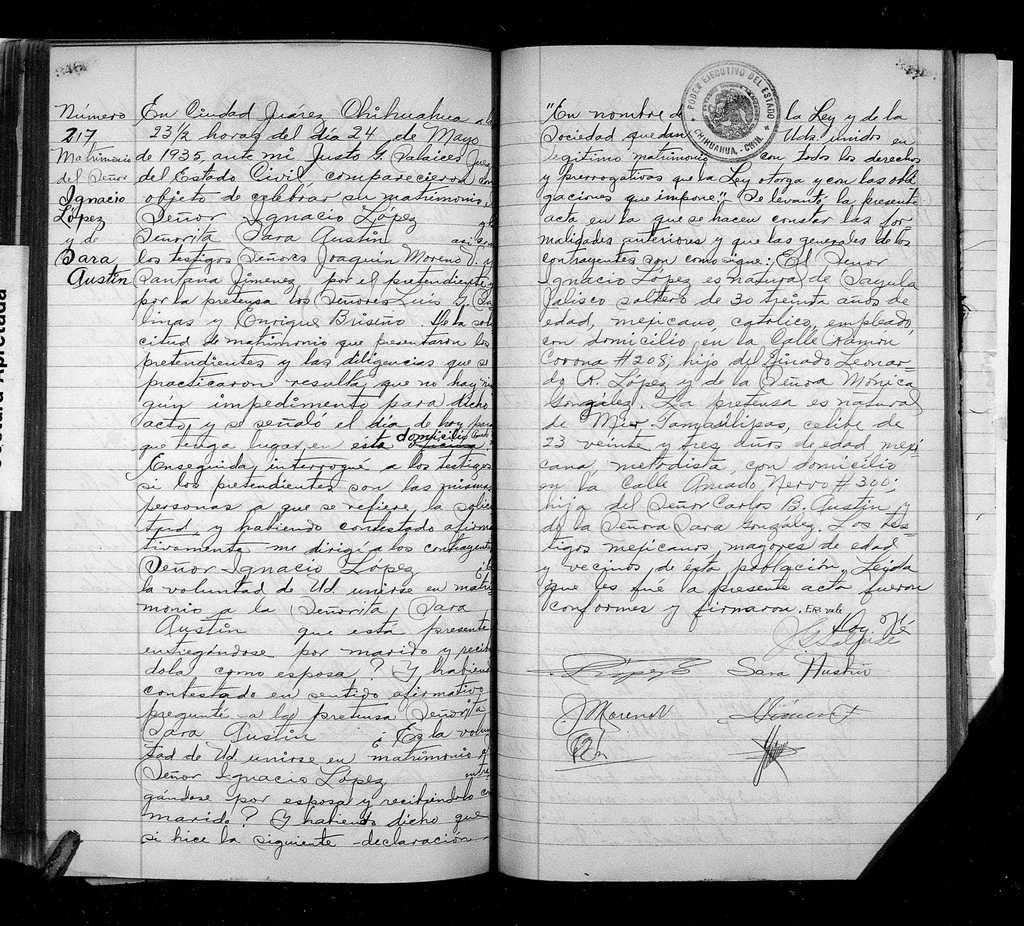 Número
217
Matrimonio
del Señor
Ignacio
López
y de
Sara
Austin
En Ciudad Juárez Chihuahua a las
23½ horas del día 24 de Mayo
de 1935, ante mi Justo G. Palaices Juez
del Estado Civil comparecieron con
objeto de celebrar su matrimonio, el
Señor Ignacio López y la
Señorita Sara Austin así como
los testigos Señores Joaquín Moreno V. y
Santana Jimenez por el pretendiente y
por la pretensa los Señores Luis G. Sa
linas y Enrique Brisiño. De la soli
citud de matrimonio que presentaron los
pretendientes y las diligencias que se
practicaron resulta, que no hay nin
gún impedimento para dicho
acto, y se señaló el día de hoy para
que tenga lugar, en esta domicilio
Enseguida, interrogué a los testigos
si los pretendientes son las mismas
personas a que se refiere la solici
tud, y habiendo contestado afirma
tivamente me dirigí a los contrayentes
Señor Ignacio López ¿Es
la voluntad de Ud. unirse en matri
monio a la Señorita Sara
Austin que está presente
entregándose por marido y recibién
dola como esposa? Y habiendo
contestado en sentido afirmativo
pregunté a la pretensa Señorita
Sara Austin ¿Es la volun
tad de Ud. unirse en matrimonio al
Señor Ignacio López entre
gándose por esposa y recibiéndolo como
marido? Y habiendo dicho que
si hice la siguiente declaración
"En nombre de la Ley y de la
Sociedad quedan Uds. unidos en
legítimo matrimonio con todos los derechos
y prerrogativas que la Ley otorga y con las obli
gaciones que impone". Se levantó la presente
acta en la que se hacen constar las for
malidades anteriores y que las generales de los
contrayentes son como sigue: El Señor
Ignacio López es natural de Sayula
Jalisco soltero de 30 treinta años de
edad, mejicano, católico, empleado,
con domicilio en la Calle Ramón
Corona #208; hijo del finado Leonar-
do R. López y de la Señora Mónica
González. La pretensa es natural
de Mier Tamaulipas, célibe de
23 veinte y tres años de edad meji
cana, metodista, con domicilio
en la Calle Amado Nervo #300;
hija del Señor Carlos B. Austin y
de la Señora Sara González. Los tes-
tigos mejicanos mayores de edad
y vecinos de esta población. Leida
que les fué la presente acta fueron
conformes y firmaron.
Doy Fé
Sara Austin
J. Moreno V
PODER EJECUTIVO DEL ESTADO
CHIHUAHUA. - CHIH.
Apretada